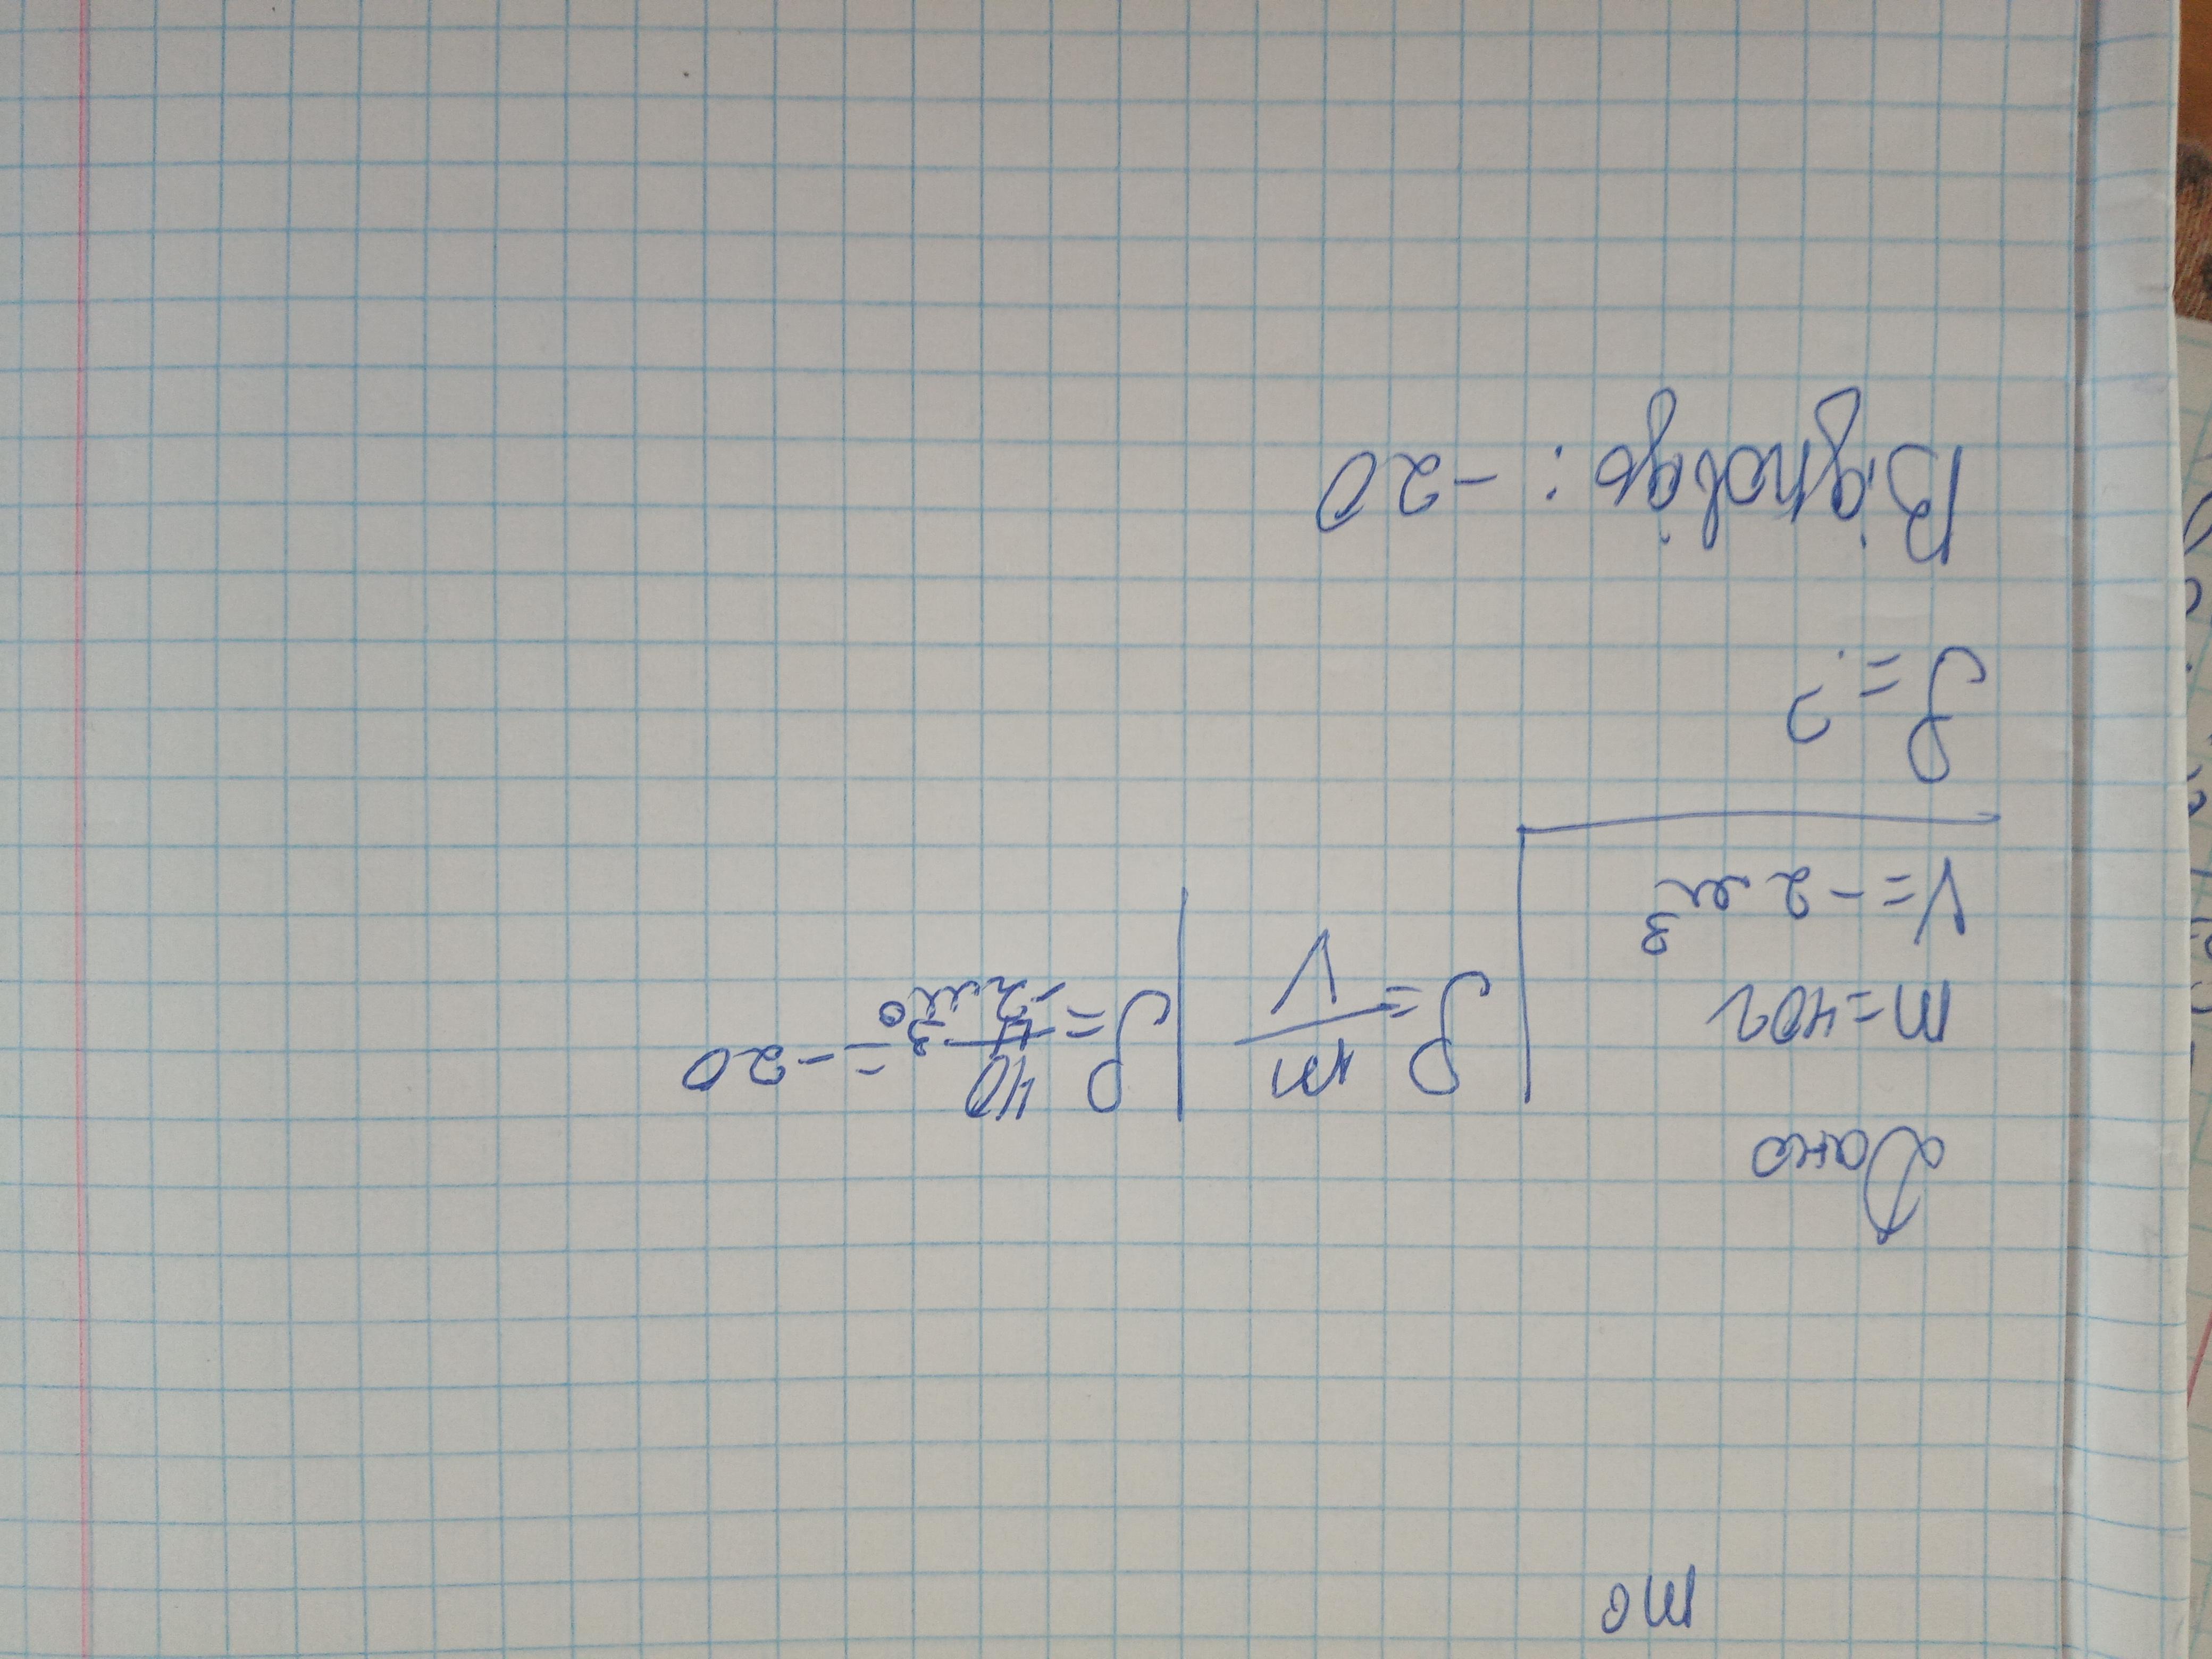 то
Дано
m=40г
V=-2см³
ρ=?
ρ=m/V
ρ=40/-2 = -20
Відповідь: -20